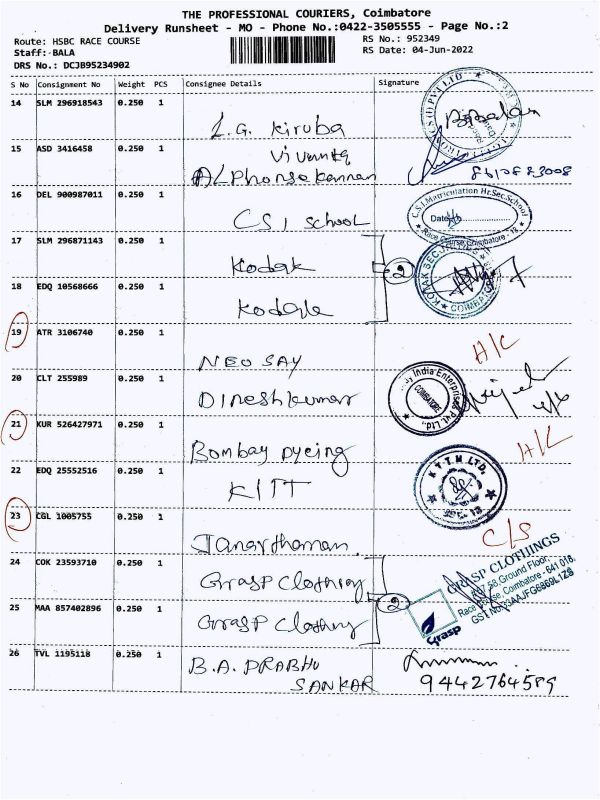 THE PROFESSIONAL COURIERS, Coimbatore
Delivery Runsheet - MO - Phone No.:0422-3505555 - Page No.:2
Route: HSBC RACE COURSE
RS No.: 952349
Staff: BALA
RS Date: 04-Jun-2022
DRS No.: DCJB95234902
S No Consignment No Weight PCS Consignee Details Signature
14 SLM 296918543 0.250 1
L.G. Kiruba
15 ASD 3416458 0.250 1
Alphonse Kannan
16 DEL 900987011 0.250 1
C.S.I. Matriculation Hr.Sec.School
Date
Race Course, Coimbatore - 18
CSI School
17 SLM 296871143 0.250 1
Kodak
2
18 EDQ 10568666 0.250 1
COIMBATORE
19 ATR 3106740 0.250 1
NEO SAY
H/C
20 CLT 255989 0.250 1
Dineshkumar
India Enterprises Pvt. Ltd.,
COIMBATORE
21 KUR 526427971 0.250 1
Bombay Dyeing
H/C
22 EDQ 25552516 0.250 1
KITT
K.T.T.M.LTD.
23 CGL 1005755 0.250 1
Janarthanan.
C/S
24 COK 23593710 0.250 1
Grasp Clothing
2
GRASP CLOTHINGS
58, Ground Floor,
Race Course, Coimbatore - 641 018.
25 MAA 857402896 0.250 1
Grasp Clothing
Grasp
26 TVL 1195118 0.250 1
B.A. PRABHU
SANKAR
9442764589